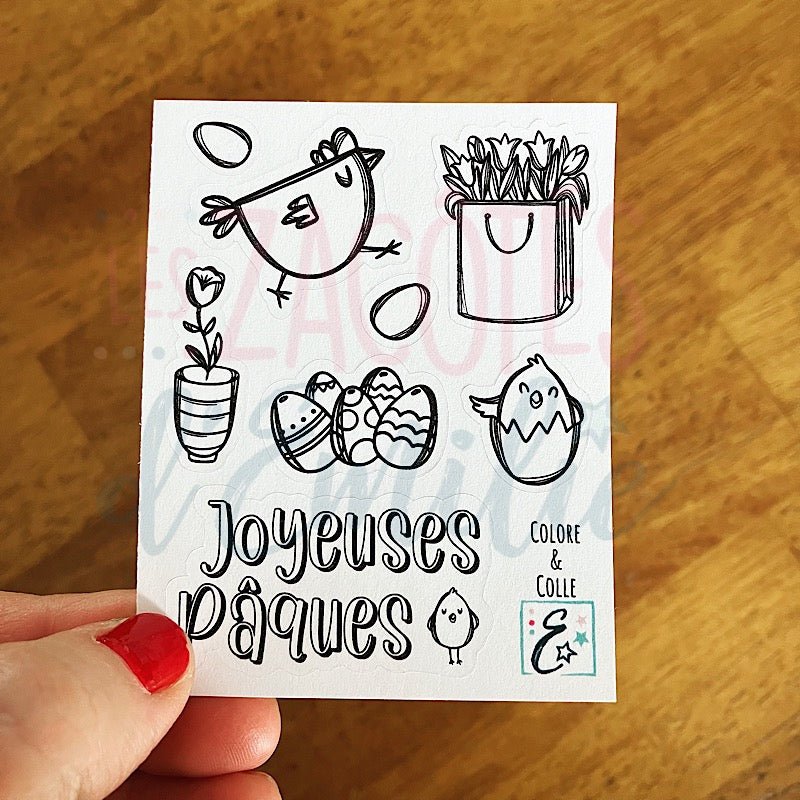 LES ZAGOTES
d'Emilie
Joyeuses
Pâques
COLORE
&
COLLE
E